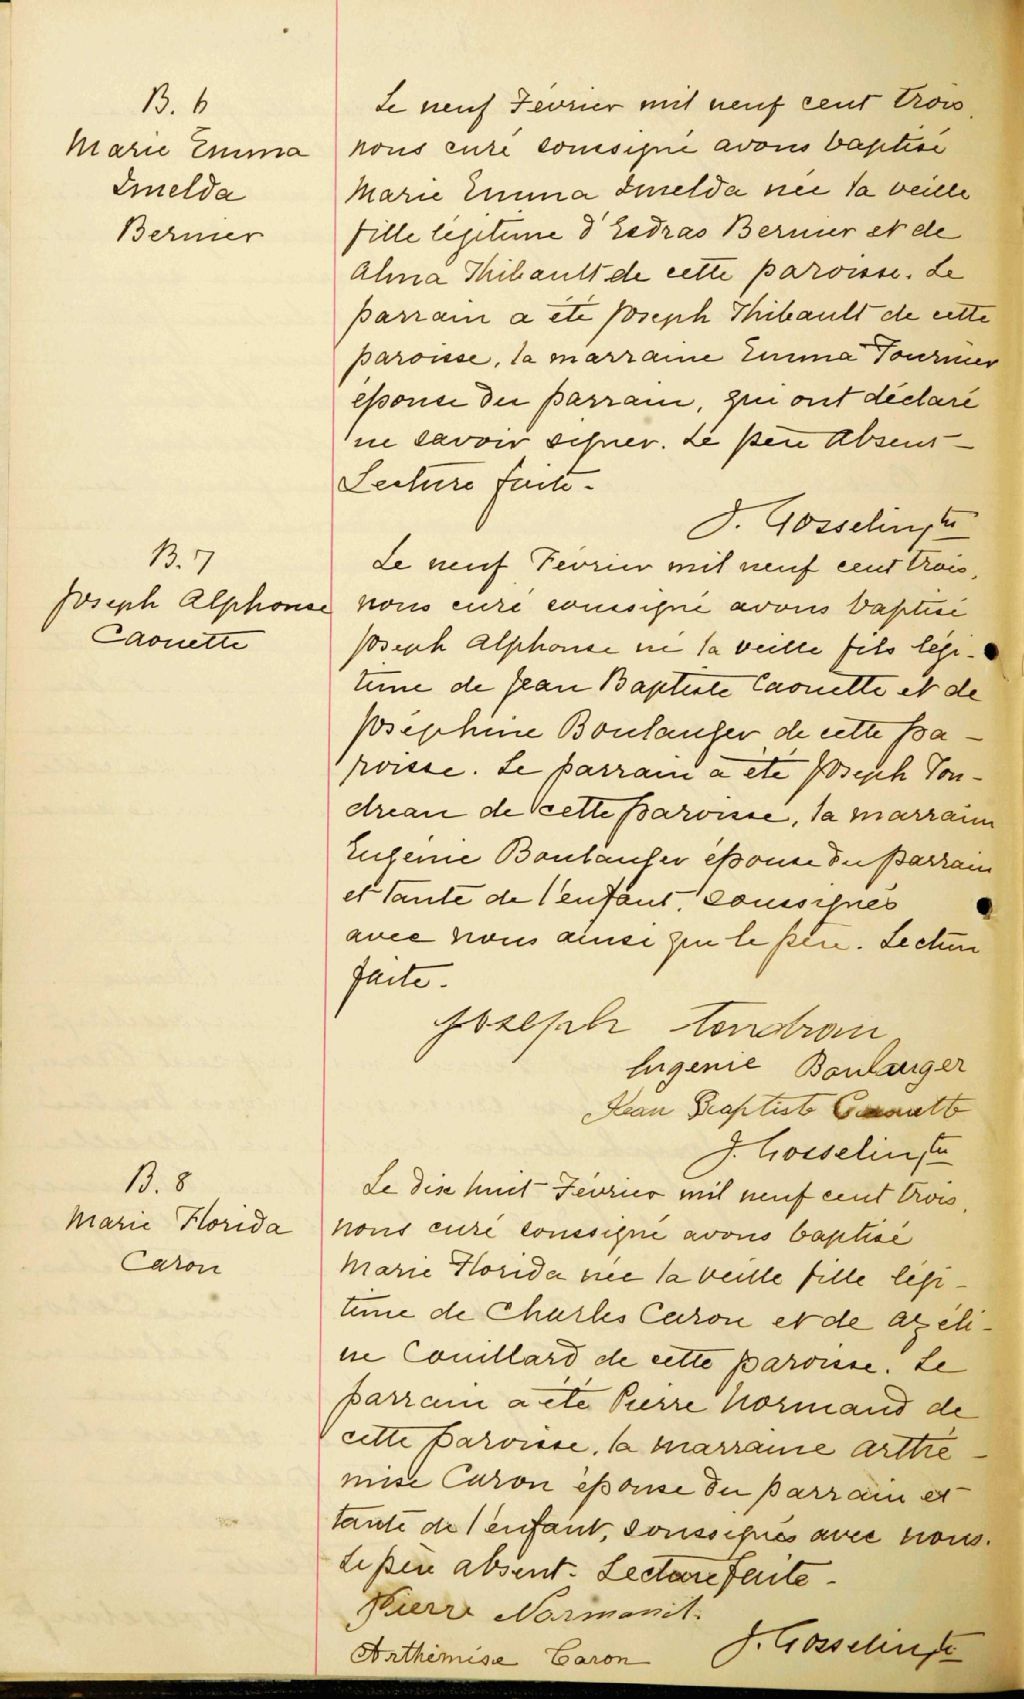 B. 6
Marie Emma
Imelda
Bernier
Le neuf Février mil neuf cent trois,
nous curé soussigné avons baptisé
Marie Emma Imelda née la veille
fille légitime d'Esdras Bernier et de
Alma Thibault de cette paroisse. Le
parrain a été Joseph Thibault de cette
paroisse, la marraine Emma Fournier
épouse du parrain, qui ont déclaré
ne savoir signer. Le père absent –
Lecture faite –
J. Gosselin, ptre
B. 7
Joseph Alphonse
Caouette
Le neuf Février mil neuf cent trois,
nous curé soussigné avons baptisé
Joseph Alphonse né la veille fils légi-
time de Jean Baptiste Caouette et de
Joséphine Boulanger de cette pa-
roisse. Le parrain a été Joseph Ton-
dreau de cette paroisse, la marraine
Eugénie Boulanger épouse du parrain
et tante de l'enfant, soussignés
avec nous ainsi que le père. Lecture
faite.
Joseph Tondrau
Eugenie Boulanger
Jean Baptiste Caouette
J. Gosselin, ptre
B. 8
Marie Florida
Caron
Le dix huit Février mil neuf cent trois,
nous curé soussigné avons baptisé
Marie Florida née la veille fille légi-
time de Charles Caron et de Azéli-
ne Couillard de cette paroisse. Le
parrain a été Pierre Normand de
cette paroisse, la marraine Arthé-
mise Caron épouse du parrain et
tante de l'enfant, soussignés avec nous.
Le père absent. Lecture faite –
Pierre Normand.
Arthémise Caron
J. Gosselin, ptre